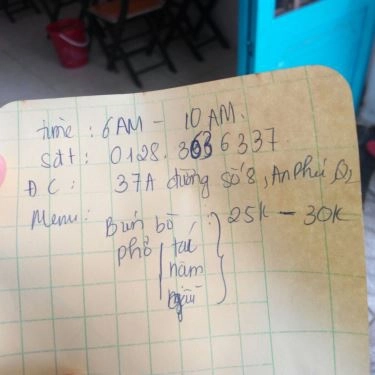 time : 6AM - 10AM.
sđt : 0128. 3636337
ĐC : 37A đường số 8, An Phú Q2
Menu: Bún bò : 25k - 30k
phở tái
nạm
gầu